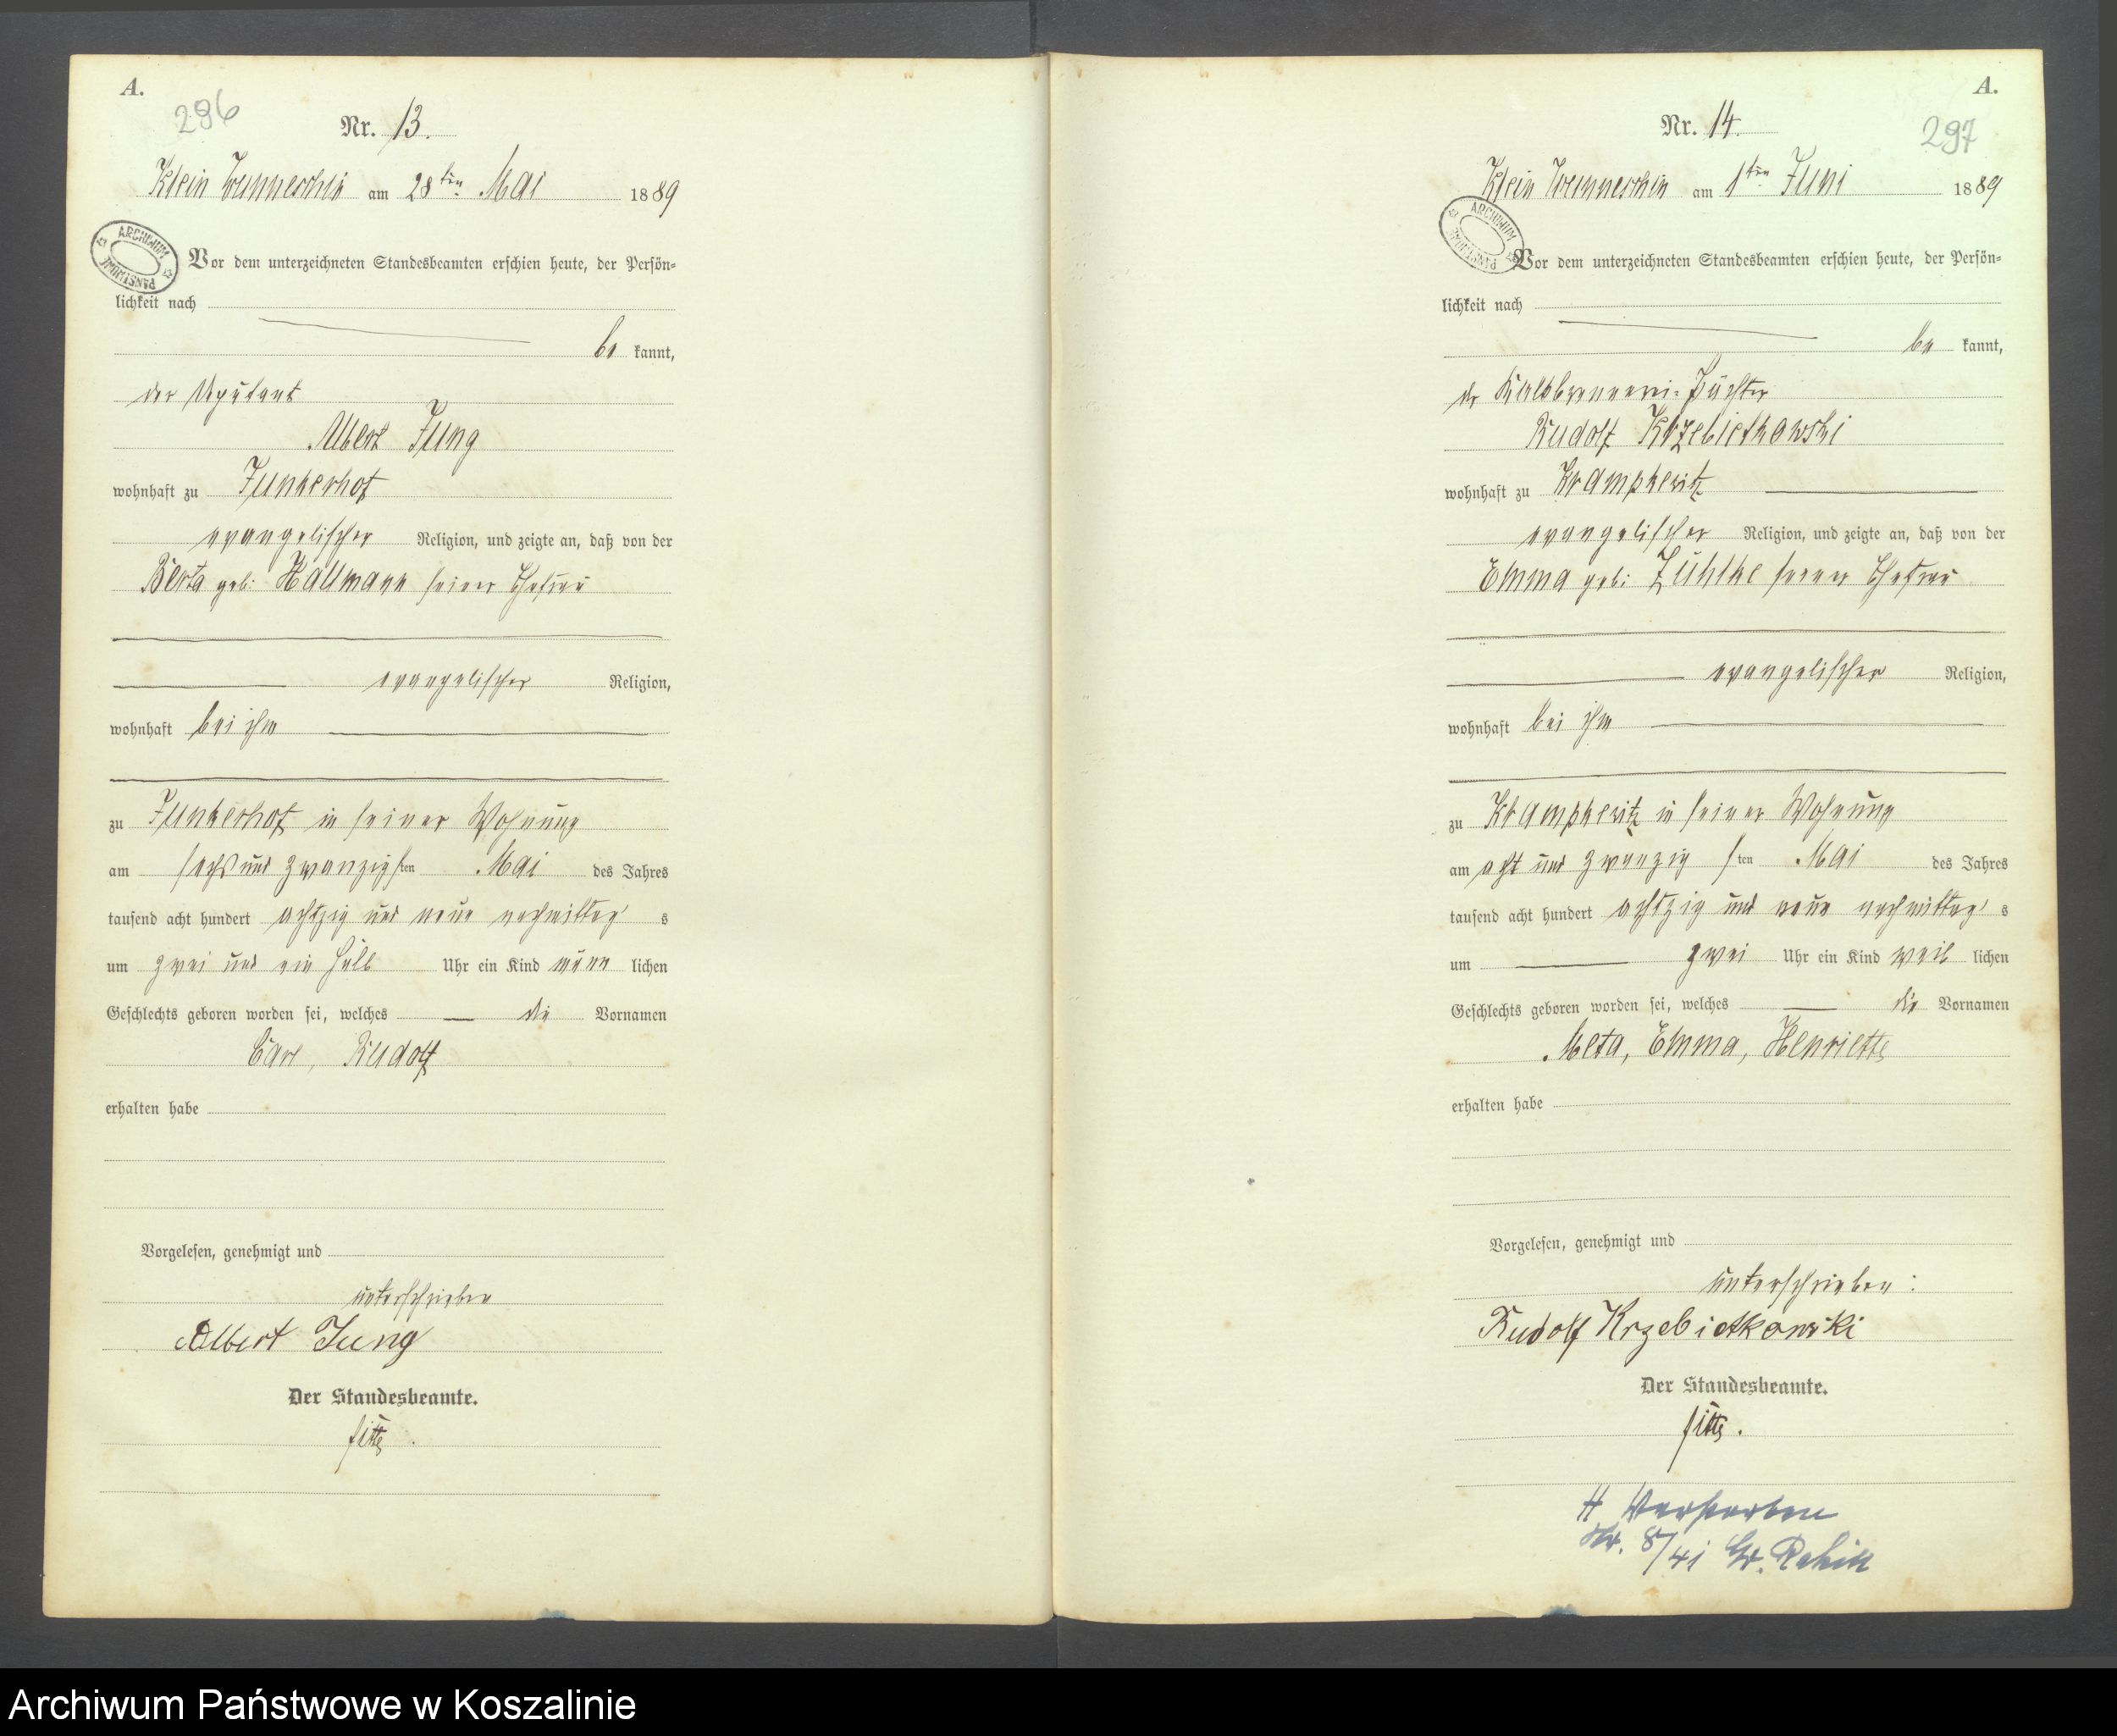 A.
296
Nr. 13.
Klein Wunneschin am 28ten Mai 1889
ARCHIWUM PAŃSTWOWE
Vor dem unterzeichneten Standesbeamten erschien heute, der Persön-
lichkeit nach
be kannt,
der Deputant
Albert Jung
wohnhaft zu Junkerhof
evangelischer Religion, und zeigte an, daß von der
Berta geb: Hallmann seiner Ehefrau
evangelischer Religion,
wohnhaft bei ihm
zu Junkerhof in seiner Wohnung
am sechs und zwanzigsten Mai des Jahres
tausend acht hundert achtzig und neun nachmittags
um zwei und ein halb Uhr ein Kind männ lichen
Geschlechts geboren worden sei, welches die Vornamen
Carl, Rudolf
erhalten habe
Vorgelesen, genehmigt und
unterschrieben
Albert Jung
Der Standesbeamte.
A.
297
Nr. 14.
Klein Wunneschin am 1ten Juni 1889
ARCHIWUM PAŃSTWOWE
Vor dem unterzeichneten Standesbeamten erschien heute, der Persön-
lichkeit nach
be kannt,
der Kalkbrennerei-Pächter
Rudolf Krzebietkowski
wohnhaft zu Krampkewitz
evangelischer Religion, und zeigte an, daß von der
Emma geb: Zühlke seiner Ehefrau
evangelischer Religion,
wohnhaft bei ihm
zu Krampkewitz in seiner Wohnung
am acht und zwanzig sten Mai des Jahres
tausend acht hundert achtzig und neun nachmittags
um zwei Uhr ein Kind weib lichen
Geschlechts geboren worden sei, welches die Vornamen
Meta, Emma, Henriette
erhalten habe
Vorgelesen, genehmigt und
unterschrieben:
Rudolf Krzebietkowski
Der Standesbeamte.
Verstorben
Nr. 8/41 Gr. Rakitt
Archiwum Państwowe w Koszalinie